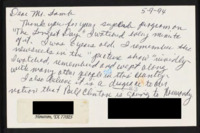 Dear Mr. Lamb 5-9-94
Thank you for your superb program on
"The Longest Day." I watched every minute
of it. I was 8 years old. I remember the
newsreels in the "picture show" vividly.
I watched, remembered and wept along
with many other people in this country.
I also take a
notion that Bill Clinton is going to Normandy
Houston, TX 77025